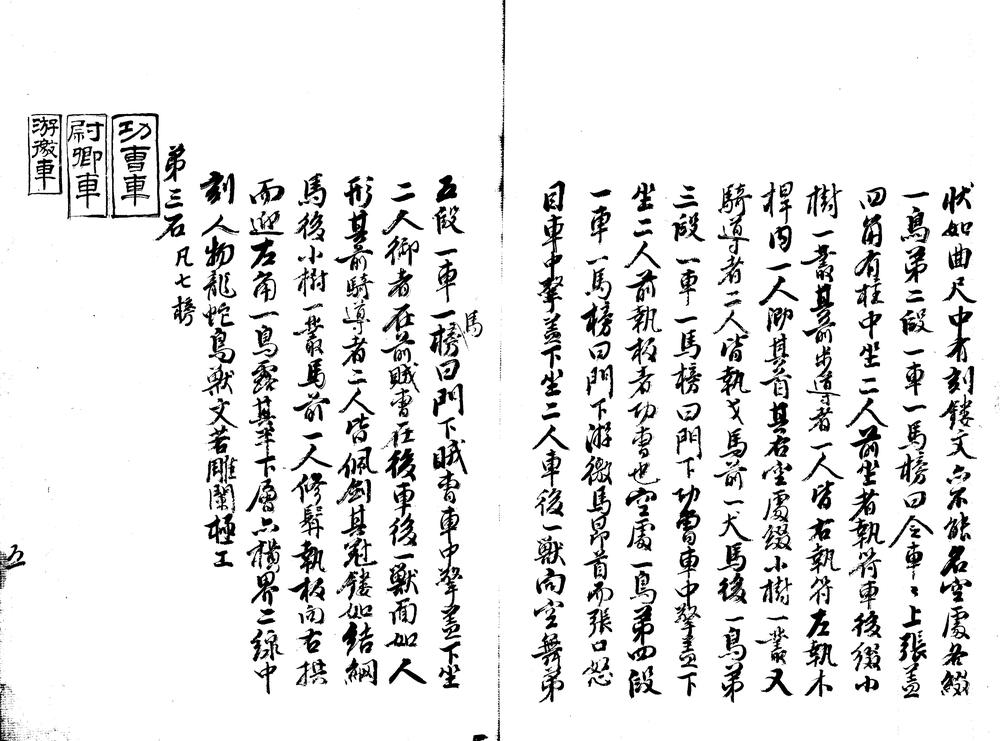 狀如曲尺中有刻鏤文亦不能名空處各綴
一鳥第二段一車一馬榜曰令車〻上張蓋
四角有柱中坐二人前坐者執符車後綴小
樹一叢其前步導者一人皆右執符左執木
桿内一人其首其右空處綴小樹一叢又
騎導者二人皆執戈馬前一犬馬後一鳥第
三段一車一馬榜曰門下功曹車中擎蓋下
坐二人前執板者功曹也空處一鳥第四段
一車一馬榜曰門下游徼馬昂首而張口怒
目車中擎蓋下坐二人車後一獸向空舞第
五段一車一馬榜曰門下賊曹車中擎蓋下坐
二人御者在前賊曹在後車後一獸面如人
形其前騎導者二人皆佩劍其冠鏤如結網
馬後小樹一叢馬前一人修髯執板向右拱
而迎左角一鳥露其半下層亦橫界二線中
刻人物龍蛇鳥獸文若雕闌極工
第三石凡七榜
功曹車
尉卿車
游徼車
五